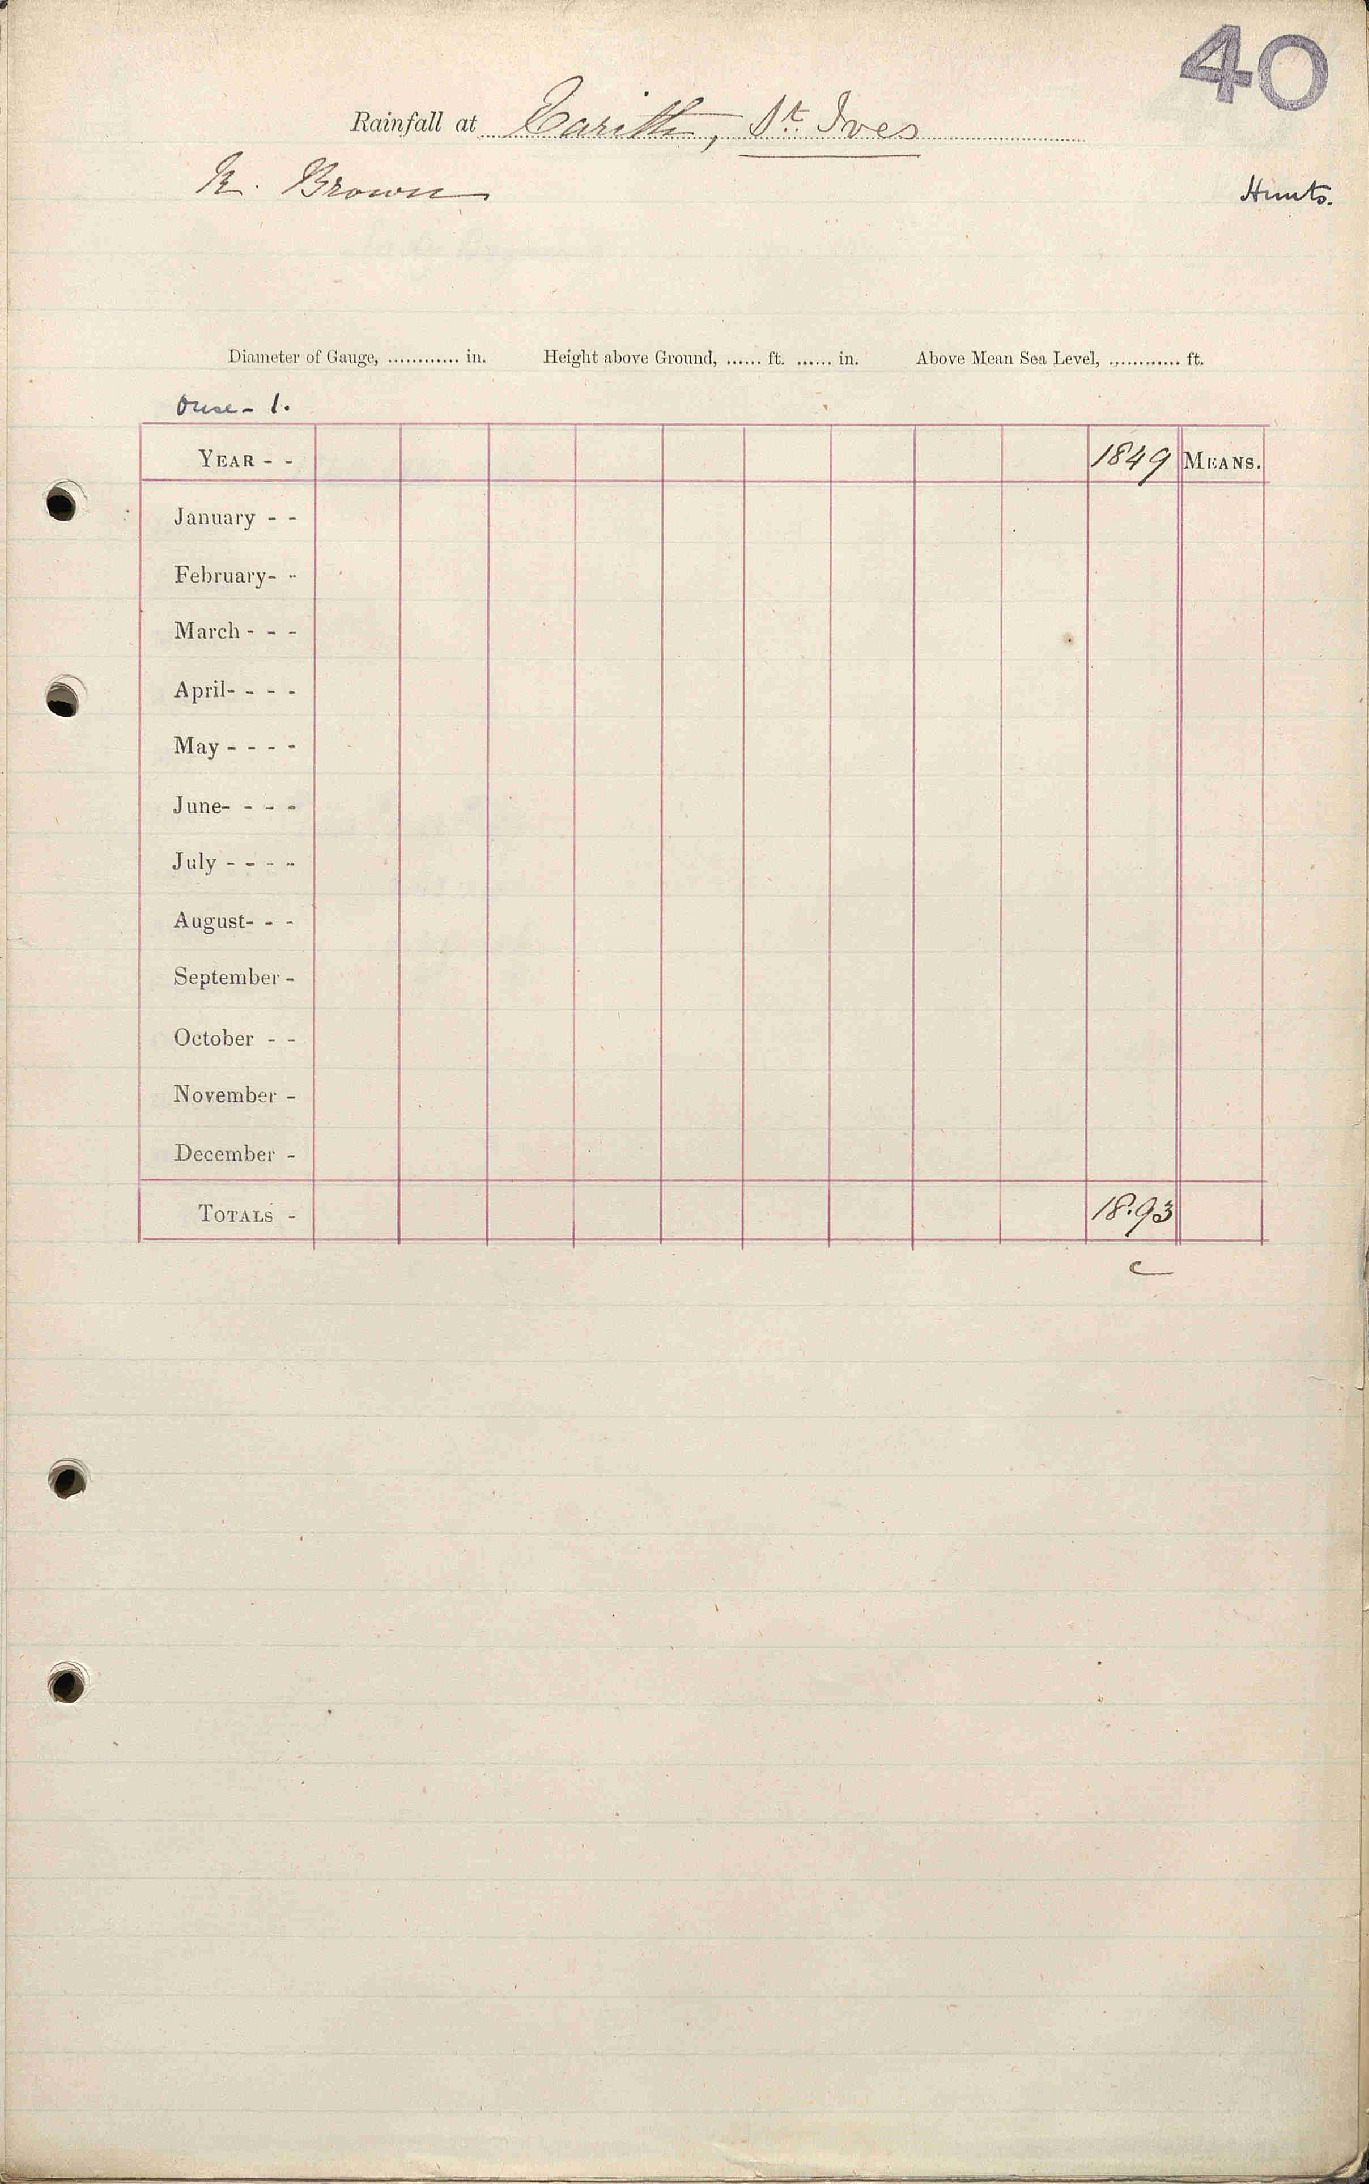 40
Rainfall at Earith, St. Ives
R. Brown
Hunts.
Diameter of Gauge, ............ in. Height above Ground, ...... ft. ...... in. Above Mean Sea Level, ............ ft.
Ouse - 1.
YEAR - - 1849 MEANS.
January - -
February- -
March - - -
April- - - -
May - - - -
June- - - -
July - - - -
August- - -
September -
October - -
November -
December -
TOTALS - 18.93
c